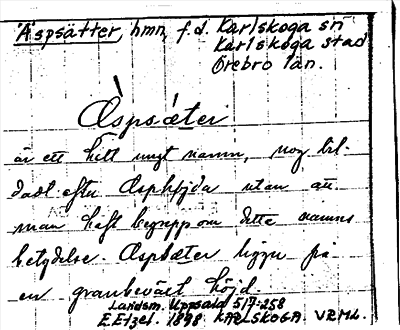 Äspsätter, hmn, f.d. Karlskoga sn
Karlskoga stad
Örebro län.
Äspsäter
är ett helt ungt namn, nog bil-
dadt efter Äsphöjda utan att
man haft begrepp om detta namns
betydelse. Äspsäter ligger på
en granbeväxt höjd.
Landsm. Uppsala 519:258
EEtzel. 1898 KARLSKOGA. VRML.